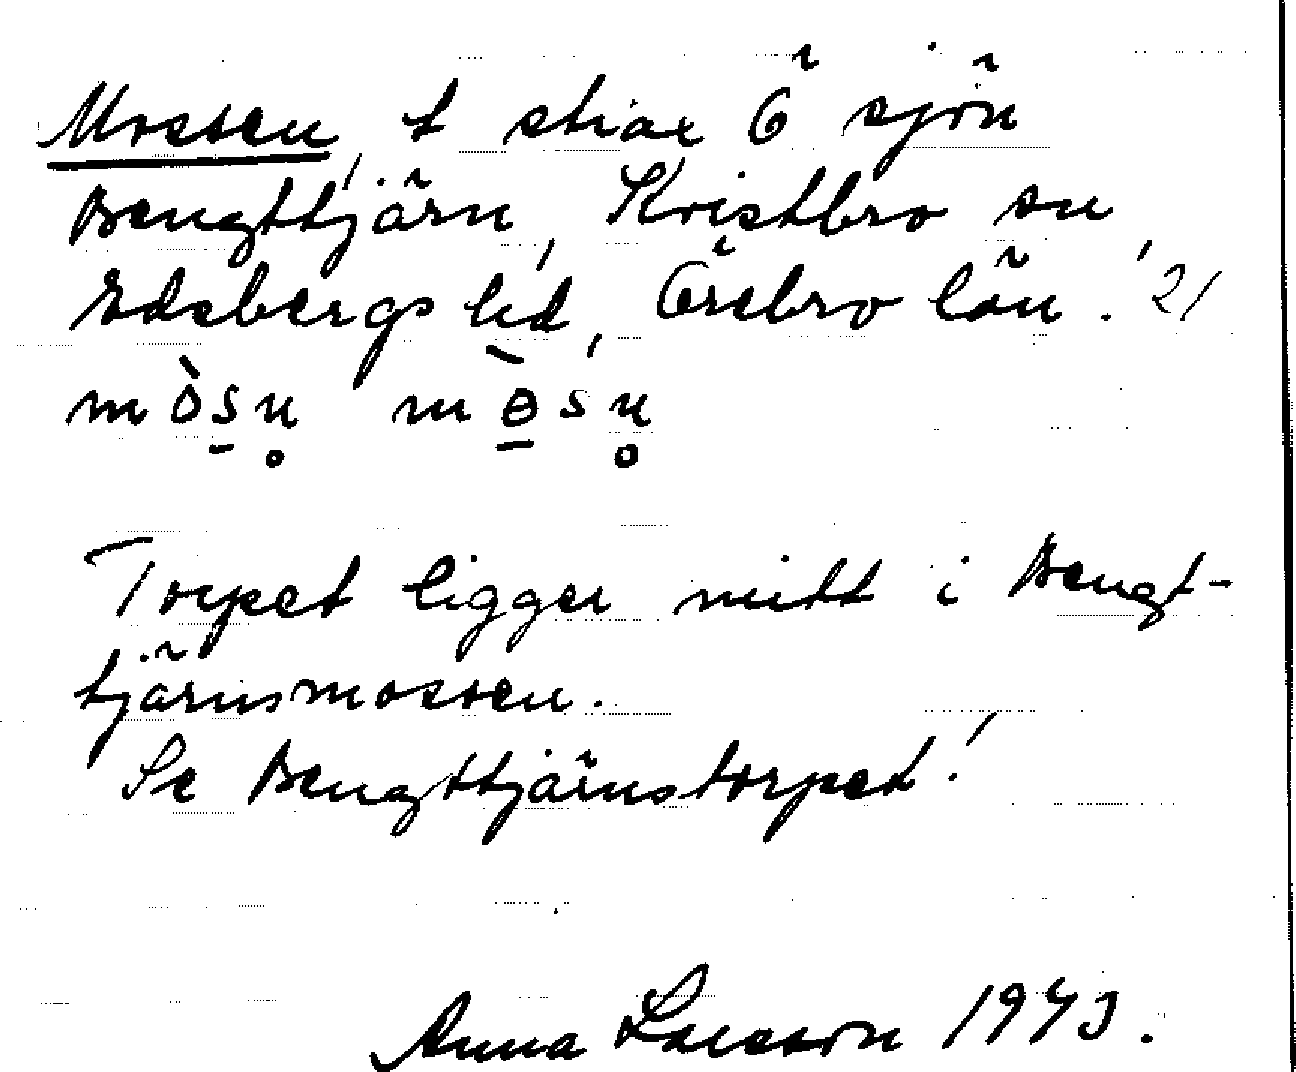 Mossen, t strax Ö sjön
Bengttjärn, Kvistbro sn,
Edsbergs hd, Örebro län. 21
mòsn̥ mɵ̀sn̥
Torpet ligger mitt i Bengt-
tjärnsmossen.
Se Bengttjärnstorpet!
Anna Larsson 1943.